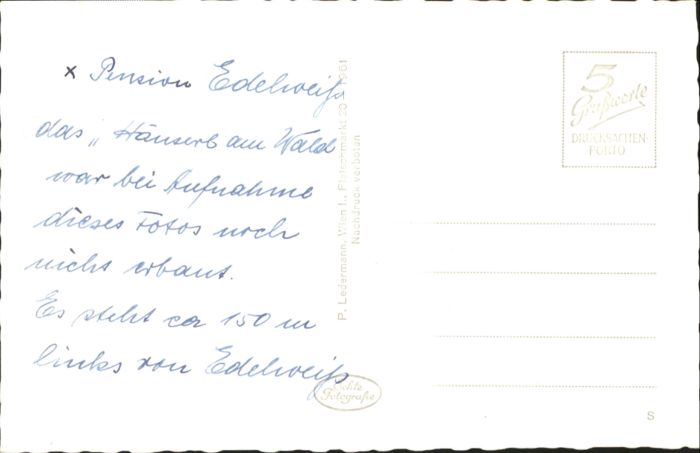 x Pension Edelweiß
das „ Häuserl am Wald
war bei Aufnahme
dieses Fotos noch
nicht erbaut.
Es steht ca 150 m
links von Edelweiß
P. Ledermann, Wien I., Fleischmarkt 20 1961
Nachdruck verboten
Echte
Fotografie
5
Grußworte
DRUCKSACHEN-
PORTO
S